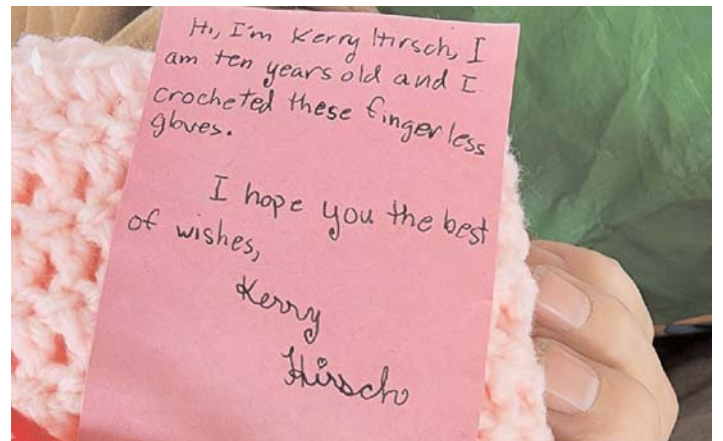 Hi, I'm Kerry Hirsch, I
am ten years old and I
crocheted these fingerless
gloves.
I hope you the best
of wishes,
Kerry
Hirsch